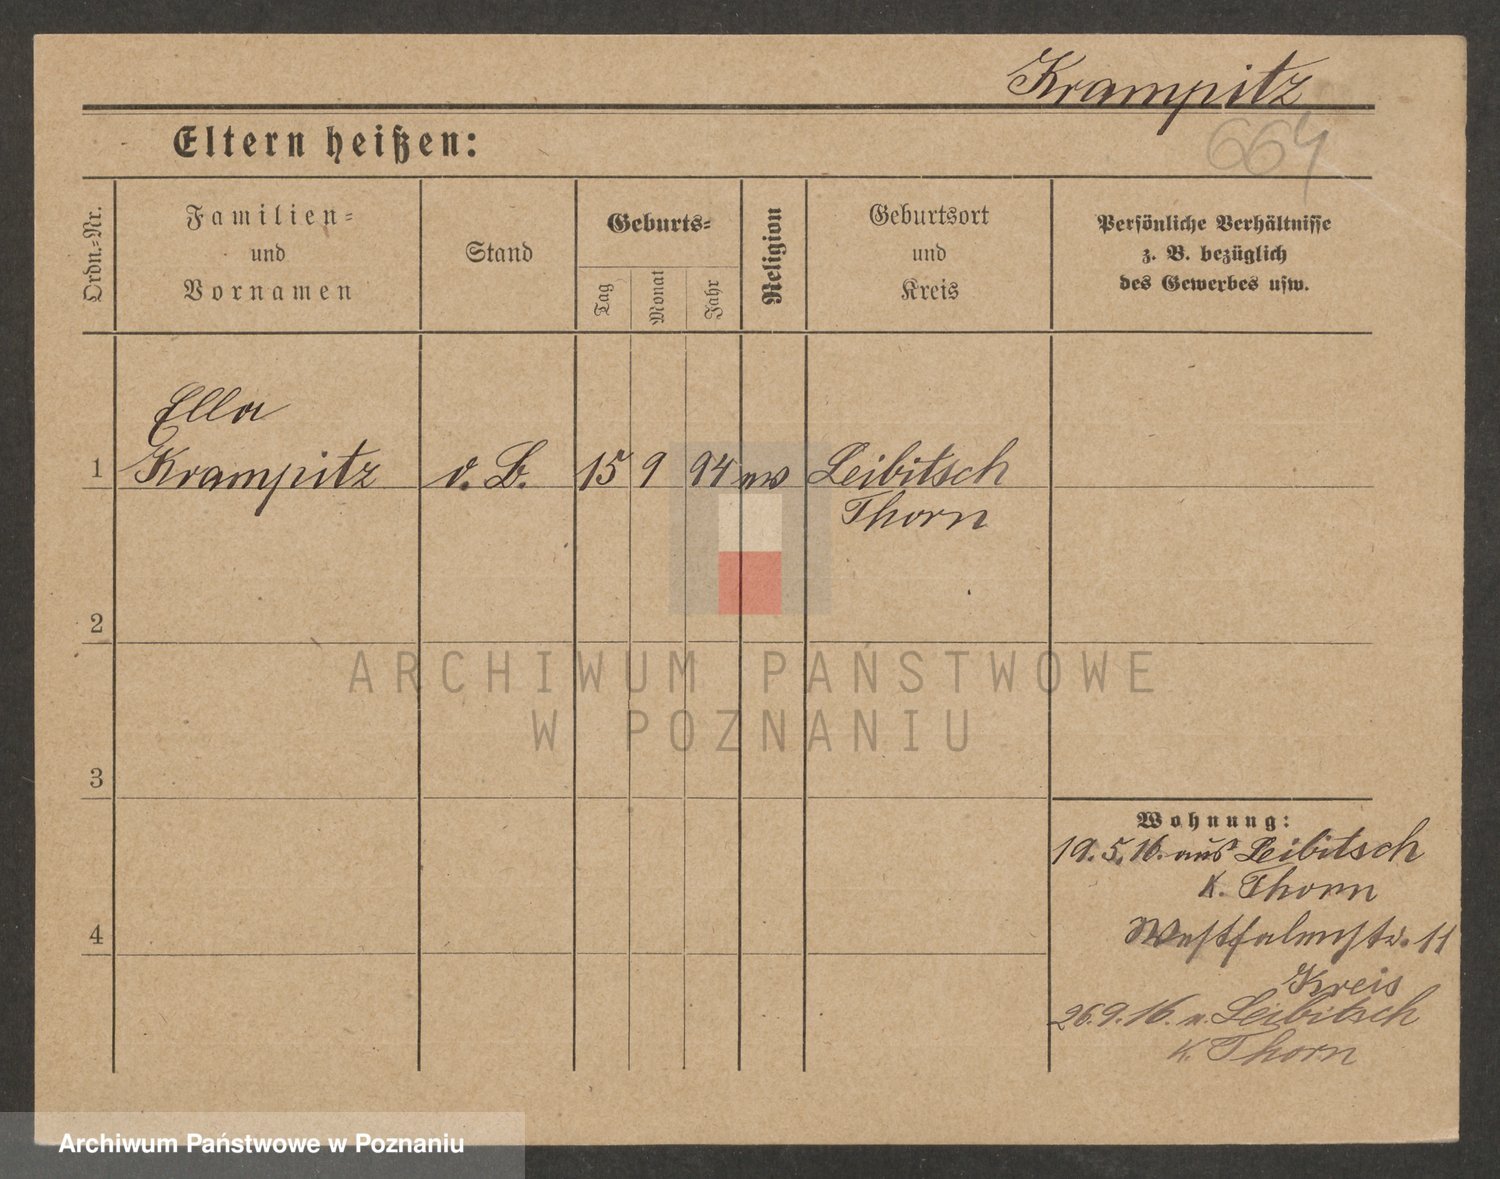 Krampitz
664
Eltern heißen:
Ordn.=Nr.
Familien=
und
Vornamen
Stand
Geburts=
Tag
Monat
Jahr
Religion
Geburtsort
und
Kreis
Persönliche Verhältnisse
z. B. bezüglich
des Gewerbes usw.
Ella
1 Krampitz o. B. 15 9 94 ev Leibitsch
Thorn
2
3
4
Wohnung:
19.5.16. aus Leibitsch
K. Thorn
Westfalenstr. 11
Kreis
26.9.16. n. Leibitsch
K. Thorn
ARCHIWUM PAŃSTWOWE
W POZNANIU
Archiwum Państwowe w Poznaniu